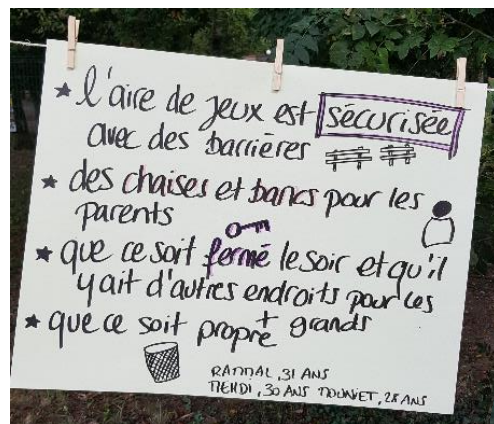 ★ l'aire de jeux est sécurisée
avec des barrières
★ des chaises et bancs pour les
parents
★ que ce soit fermé le soir et qu'il
y ait d'autres endroits pour les
+ grands
★ que ce soit propre
, 31 ANS
MEHDI, 30 ANS MOUNIET, 28 ANS